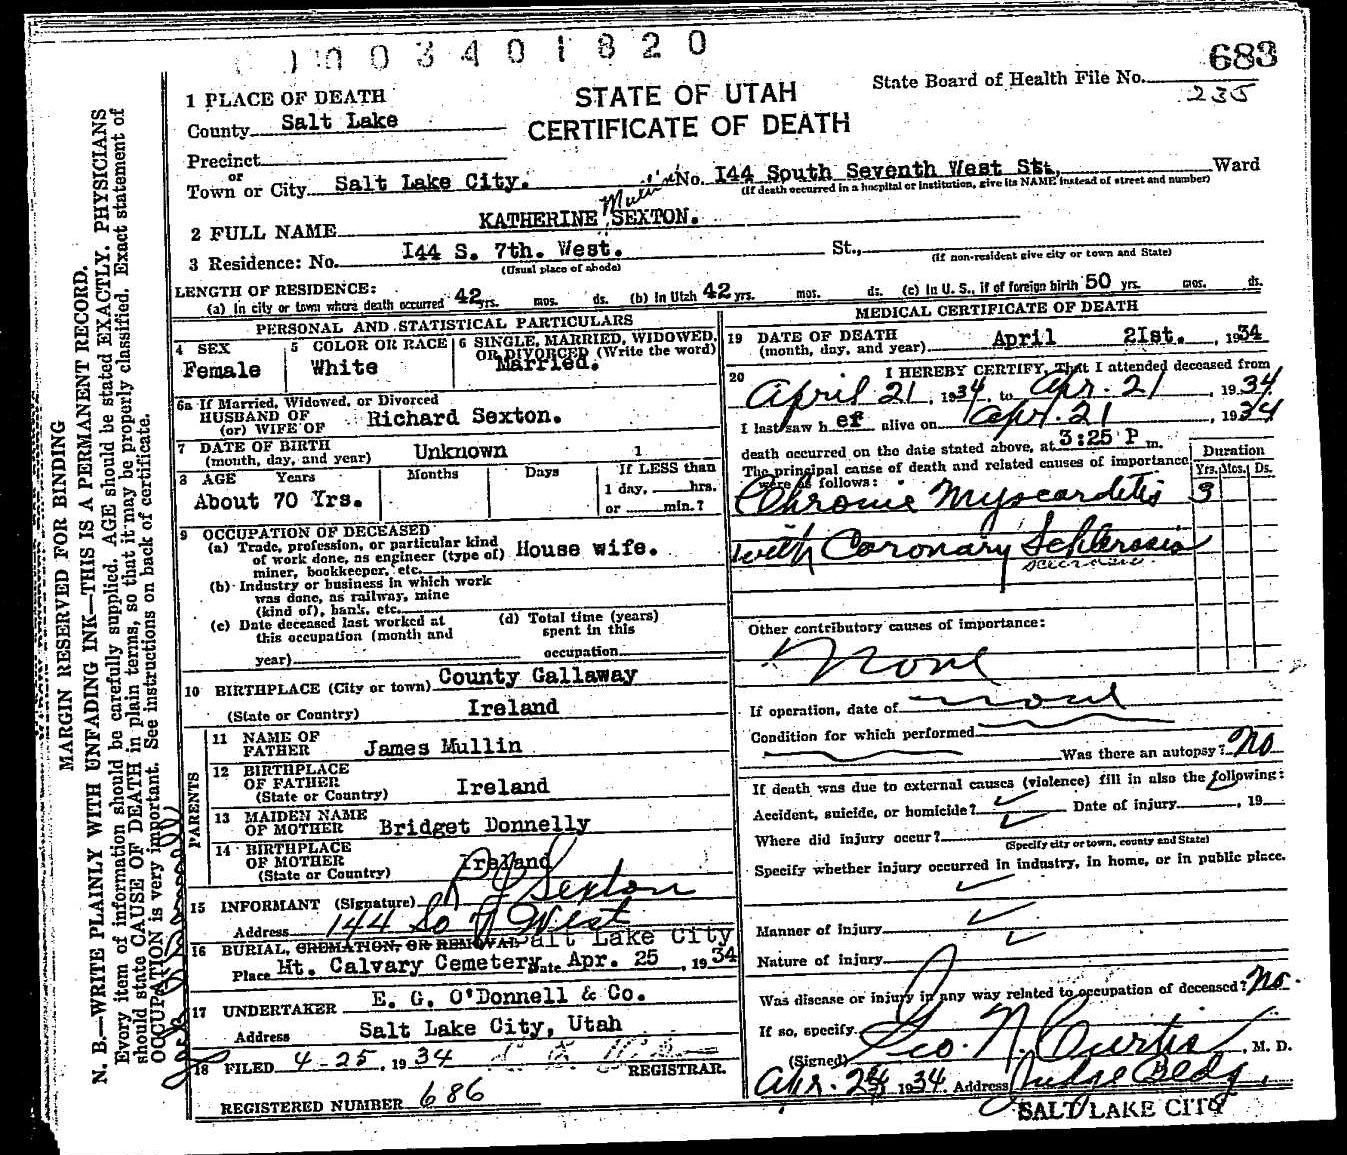 003401820
683
State Board of Health File No. 235
STATE OF UTAH
CERTIFICATE OF DEATH
1 PLACE OF DEATH
County Salt Lake
Precinct
or
Town or City Salt Lake City. No. I44 South Seventh West St., Ward
(If death occurred in a hospital or institution, give its NAME instead of street and number)
2 FULL NAME KATHERINE SEXTON.
3 Residence: No. I44 S. 7th. West. St.,
(Usual place of abode) (If non-resident give city or town and State)
LENGTH OF RESIDENCE:
(a) In city or town where death occurred 42 yrs. mos. ds. (b) In Utah 42 yrs. mos. ds. (c) In U. S., if of foreign birth 50 yrs. mos. ds.
PERSONAL AND STATISTICAL PARTICULARS
4 SEX
Female
5 COLOR OR RACE
White
6 SINGLE, MARRIED, WIDOWED,
OR DIVORCED (Write the word)
Married.
6a If Married, Widowed, or Divorced
HUSBAND OF
(or) WIFE OF Richard Sexton.
7 DATE OF BIRTH
(month, day, and year) Unknown
8 AGE Years Months Days If LESS than
1 day, hrs.
or min.?
About 70 Yrs.
9 OCCUPATION OF DECEASED
(a) Trade, profession, or particular kind
of work done, as engineer (type of) House wife.
miner, bookkeeper, etc.
(b) Industry or business in which work
was done, as railway, mine
(kind of), bank, etc.
(c) Date deceased last worked at
this occupation (month and
year)
(d) Total time (years)
spent in this
occupation
10 BIRTHPLACE (City or town) County Gallaway
(State or Country) Ireland
PARENTS
11 NAME OF
FATHER James Mullin
12 BIRTHPLACE
OF FATHER
(State or Country) Ireland
13 MAIDEN NAME
OF MOTHER Bridget Donnelly
14 BIRTHPLACE
OF MOTHER
(State or Country) Ireland
15 INFORMANT (Signature) R J Sexton
Address 144 So 7 West
16 BURIAL, CREMATION, OR REMOVAL Salt Lake City
Place Mt. Calvary Cemetery Date Apr. 25, 1934
17 UNDERTAKER E. G. O'Donnell & Co.
Address Salt Lake City, Utah
18 FILED 4-25, 1934 REGISTRAR.
REGISTERED NUMBER 686
MEDICAL CERTIFICATE OF DEATH
19 DATE OF DEATH
(month, day, and year) April 2Ist., 1934
20 I HEREBY CERTIFY, That I attended deceased from
April 21, 1934, to Apr. 21, 1934
I last saw her alive on Apr. 21, 1934
death occurred on the date stated above, at 3:25 P m.
The principal cause of death and related causes of importance
were as follows:
Duration
Yrs. Mos. Ds.
Chronic Myocarditis 3
with Coronary Schlerosis
sclerosis
Other contributory causes of importance:
None
If operation, date of none
Condition for which performed
Was there an autopsy? No
If death was due to external causes (violence) fill in also the following:
Accident, suicide, or homicide? Date of injury , 19
Where did injury occur?
(Specify city or town, county and State)
Specify whether injury occurred in industry, in home, or in public place.
Manner of injury
Nature of injury
Was disease or injury in any way related to occupation of deceased? No.
If so, specify
(Signed) Geo. N. Curtis, M. D.
Apr. 1934. Address Judge Bldg.
SALT LAKE CITY
MARGIN RESERVED FOR BINDING
N. B.—WRITE PLAINLY WITH UNFADING INK—THIS IS A PERMANENT RECORD.
Every item of information should be carefully supplied. AGE should be stated EXACTLY. PHYSICIANS
should state CAUSE OF DEATH in plain terms, so that it may be properly classified. Exact statement of
OCCUPATION is very important. See instructions on back of certificate.